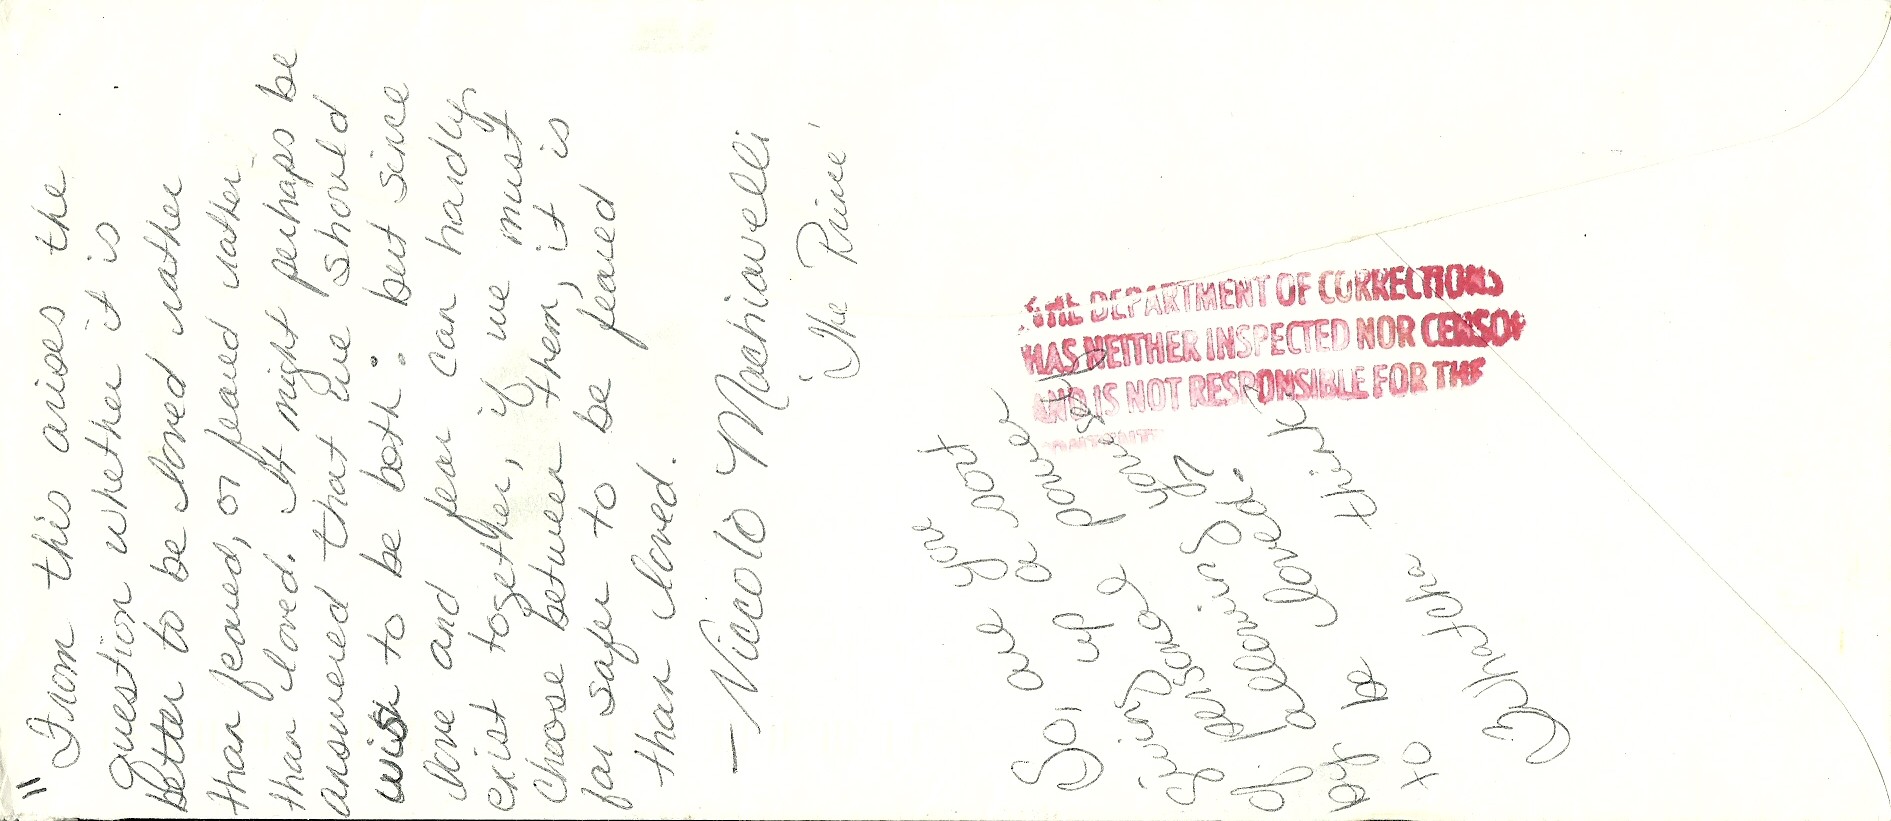 " From this arises the
question whether it is
better to be loved rather
than feared, or feared rather
than loved. It might perhaps be
answered that we should
wish to be both: but since
love and fear can hardly
exist together, if we must
choose between them, it is
far safer to be feared
than loved.
— Niccolò Machiavelli
'The Prince'
So, are you
giving up a sort
of personal power
by allowing yourself
to be loved?
Whatcha think?
THE DEPARTMENT OF CORRECTIONS
HAS NEITHER INSPECTED NOR CENSOR
AND IS NOT RESPONSIBLE FOR THE
CONTENTS